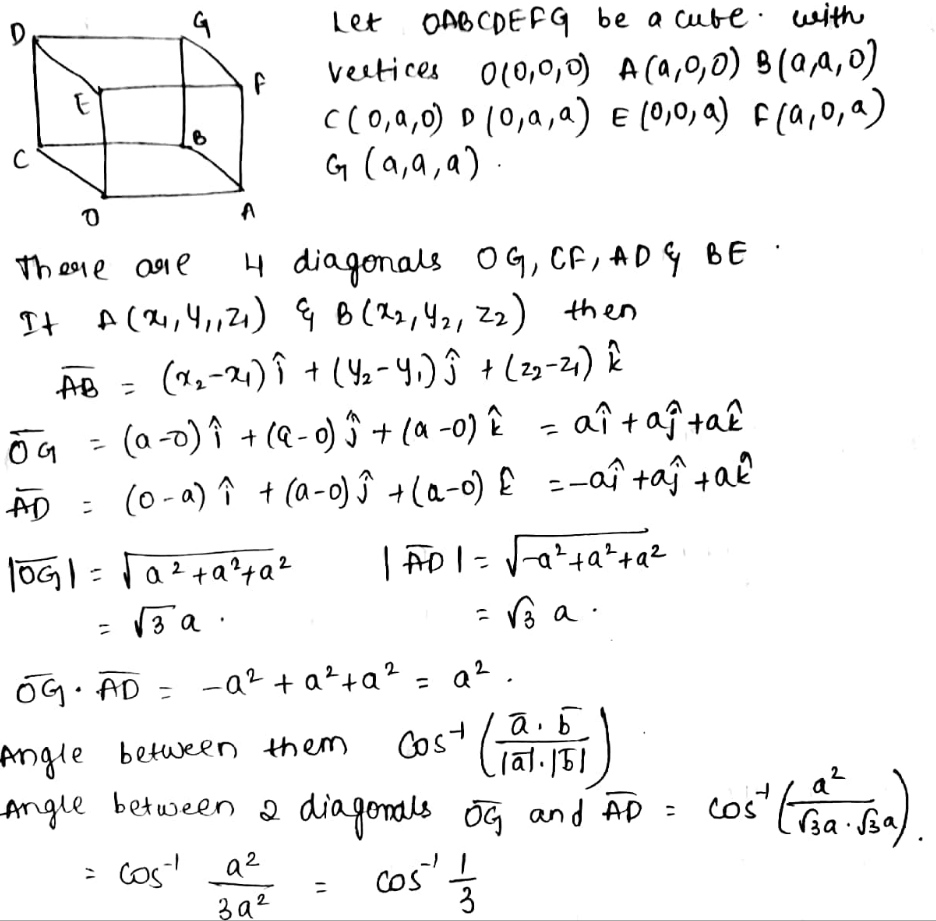 D G
Let OABCDEFG be a cube. with
E F
vertices O(0,0,0) A(a,0,0) B(a,a,0)
C B
C(0,a,0) D(0,a,a) E(0,0,a) F(a,0,a)
O A
G(a,a,a).
There are 4 diagonals OG, CF, AD & BE.
If A(x₁,y₁,z₁) & B(x₂,y₂,z₂) then
A̅B̅ = (x₂-x₁)î + (y₂-y₁)ĵ + (z₂-z₁)k̂
O̅G̅ = (a-0)î + (a-0)ĵ + (a-0)k̂ = aî + aĵ + ak̂
A̅D̅ = (0-a)î + (a-0)ĵ + (a-0)k̂ = -aî + aĵ + ak̂
|O̅G̅| = √(a²+a²+a²) |A̅D̅| = √(-a²+a²+a²)
= √3 a. = √3 a.
O̅G̅ · A̅D̅ = -a² + a² + a² = a².
Angle between them cos⁻¹(a̅·b̅/|a̅|·|b̅|)
Angle between 2 diagonals O̅G̅ and A̅D̅ = cos⁻¹(a²/√3a·√3a).
= cos⁻¹ a²/3a² = cos⁻¹ 1/3